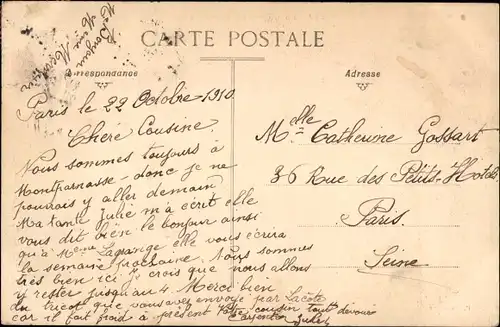 Bonjour
CARTE POSTALE
Correspondance
Adresse
Paris le 22 Octobre 1910
Chère Cousine
Nous sommes toujours à
Montparnasse donc je ne
pourrais y aller demain
Ma tante Julie m'a écrit elle
vous dit bien le bonjour ainsi
qu'à Mme Lagrange elle vous écrira
la semaine prochaine. Nous sommes
très bien ici je crois que nous allons
y rester jusqu'au 4 Merci bien
du tricot que vous avez envoyé par
car il fait froid à présent Votre cousin tout dévoué
Carpentier Jules
Melle Catherine Gossart
36 Rue des Petits-Hotels
Paris.
Seine